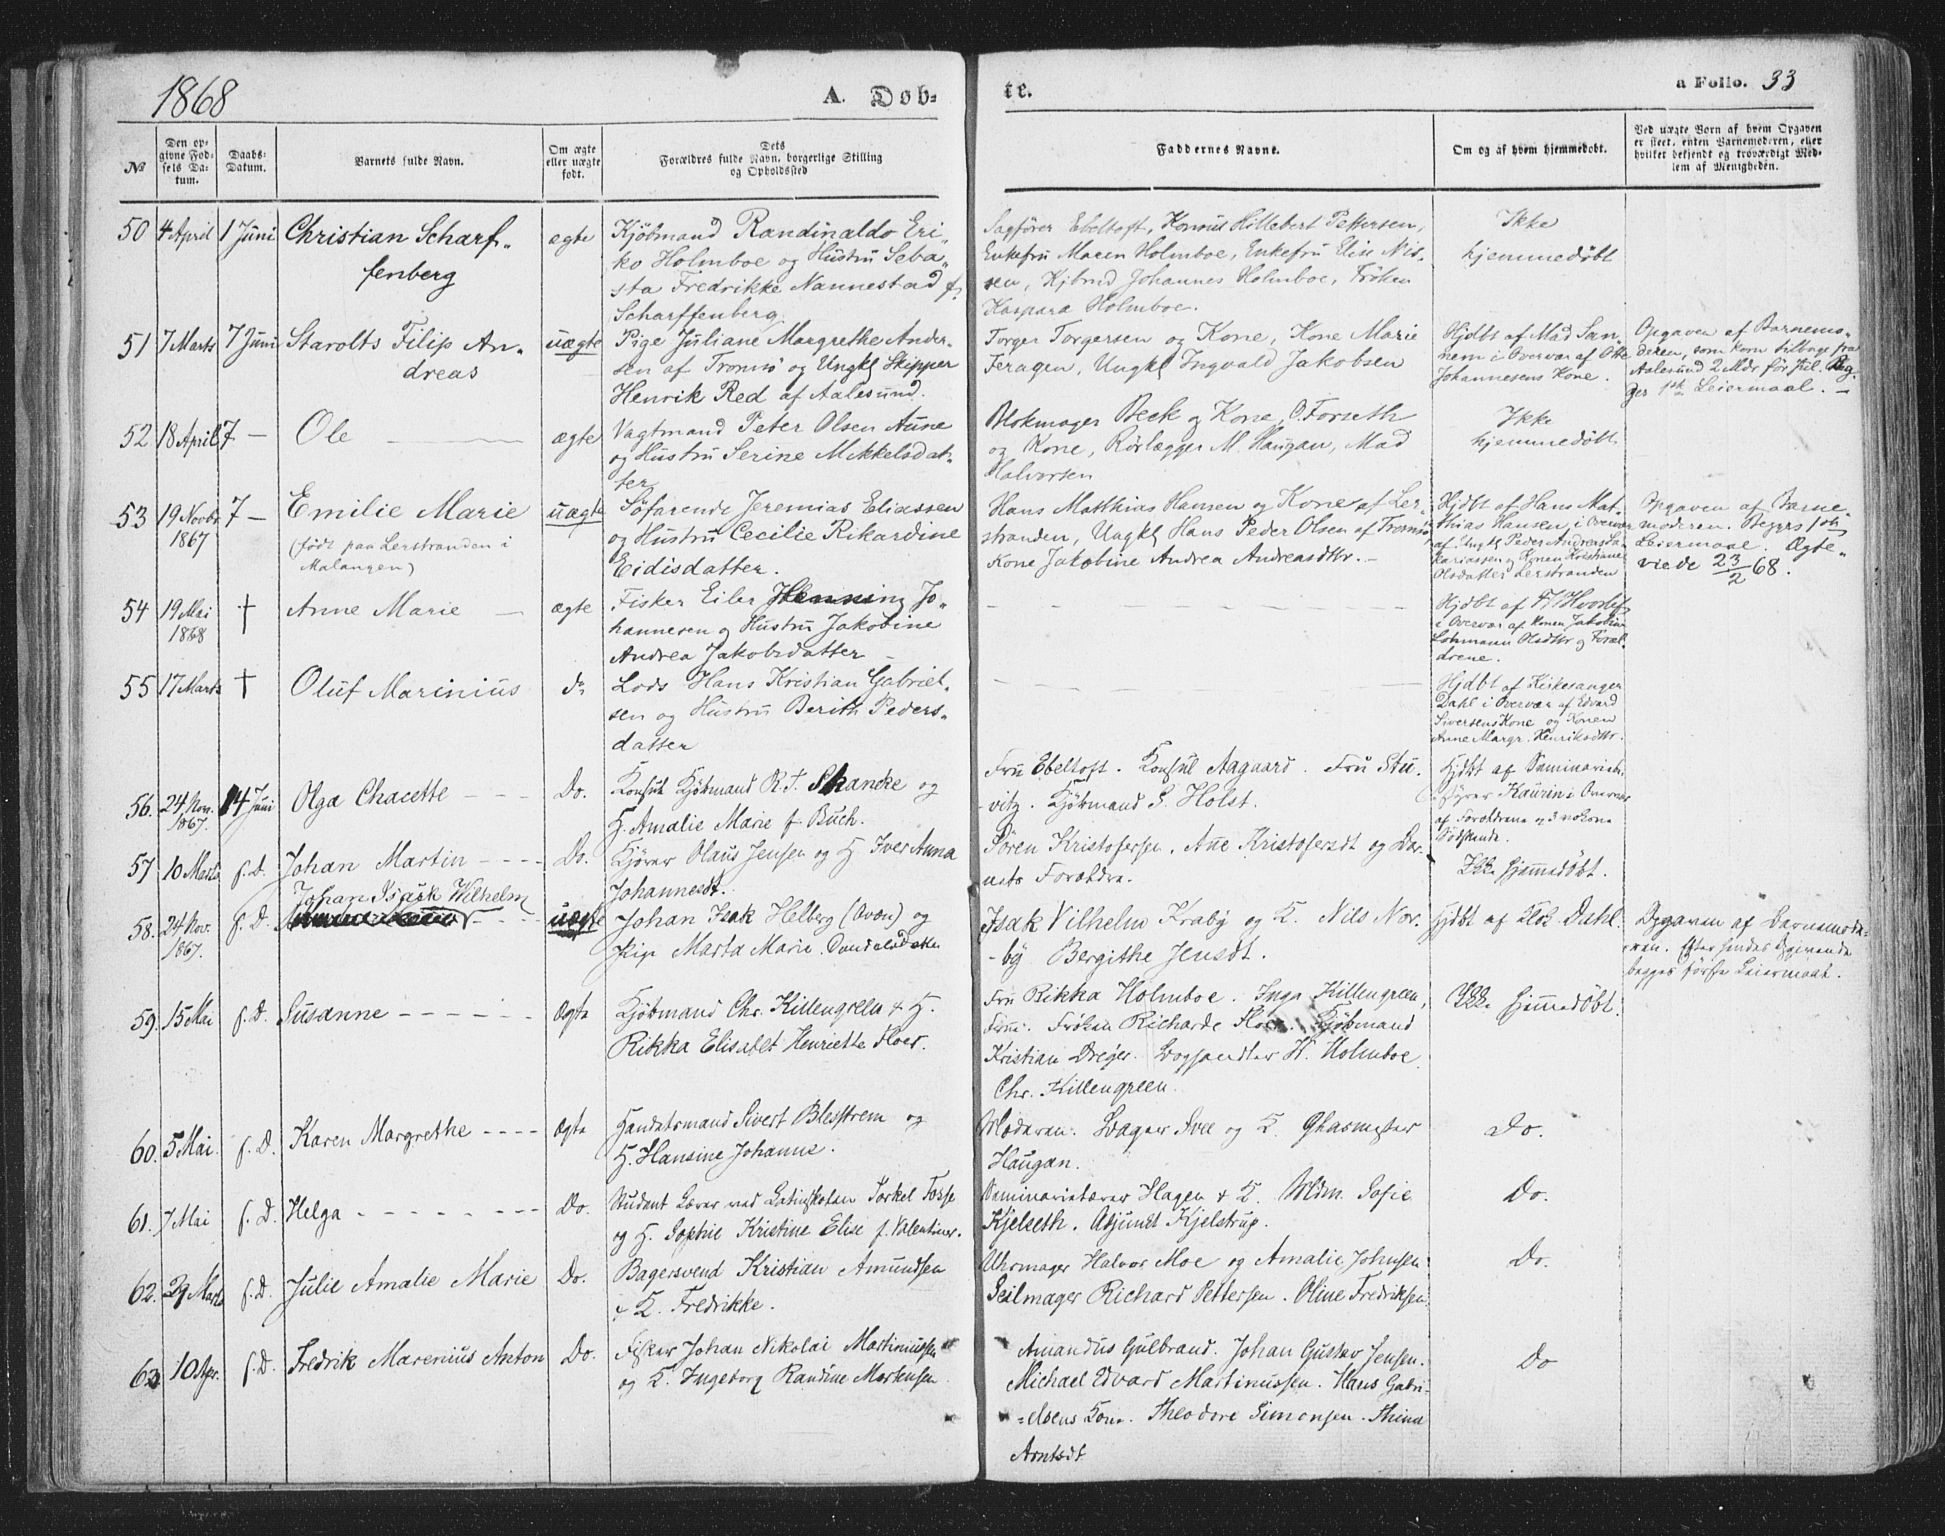 1868
A. Døb-
te.
a Folio. 33
№
Den op-
givne Fød-
sels Da-
tum.
Daabs-
Datum.
Barnets fulde Navn.
Om ægte
eller uægte
født.
Dets
Forældres fulde Navn, borgerlige Stilling
og Opholdssted
Faddernes Navne.
Om og af hvem hjemmedøbt.
Ved uægte Børn af hvem Opgaven
er skeet, enten Barnemoderen, eller
hvilket bekjendt og troværdigt Med-
lem af Menigheden.
50 4 April 1 Juni Christian Scharf-
fenberg
ægte
Kjöbmand Randinaldo Eri-
ko Holmboe og Hustru Seba-
sta Fredrikke Nannestad f.
Scharffenberg
Sagförer Ebeltoft, Konsul Hillebert Pettersen,
Enkefru Maren Holmboe, Enkefru Elise Nis-
sen, Kjbmd Johannes Holmboe, Fröken
Kaspara Holmboe.
Ikke
hjemmedøbt
51 7 Marts 7 Juni Starolts Filip An-
dreas
uægte
Pige Juliane Margrethe Ander-
sen af Tromsö og Ungkl Skipper
Henrik Red af Aalesund.
Torger Torgersen og Kone, Kone Marie
Feragen, Ungkl Ingvald Jakobsen
Hjdbt af Mad San-
nem i Overvær af Otte
Johannesens Kone.
Opgaven af Barnemo-
deren, som kom tilbage fra
Aalesund 2 Mdr før Jul. Beg-
ges 1ste Leiermaal.
52 18 April 7 — Ole
ægte
Vagtmand Peter Olsen Aune
og Hustru Serine Mikkelsdat-
ter
Blokmager Beck og Kone, O. Forseth
og Kone, Rörlægger M. Haugan, Mad
Halvorsen
Ikke
hjemmedøbt
53 19 Novbr 7 — Emilie Marie
1867
(født paa Lerstranden i
Malangen)
uægte
Söfarende Jeremias Eliassen
og Hustru Cecilie Rikardine
Eidisdatter.
Hans Matthias Hansen og Kone af Ler-
stranden, Ungkl Hans Peder Olsen af Tromsö,
Kone Jakobine Andrea Andreasdtr.
Hjdbt af Hans Mat-
thias Hansen, i Overvær
af Ungkl Peder Andreas Za-
kariassen og Konen Kristiane
Olsdatter Lerstranden
Opgaven af Barne-
moderen. Begges 1ste
Leiermaal. Ægte-
viede 23/2 68.
54 19 Mai † Anne Marie
1868
ægte
Fisker Eiler Henning Jo-
hannesen og Hustru Jakobine
Andrea Jakobsdatter
Hjdbt af
i Overvær af Konen Jakobine
Lohmann Olsdtr og Foræl-
drene.
55 17 Marts † Oluf Marinius
do
Lods Hans Kristian Gabriel-
sen og Hustru Berith Peders-
datter
Hjdbt af Kirkesanger
Dahl i Overvær af Edvard
Sivertsens Kone og Konen
Anne Margr. Henriksdtr.
56. 24 Nov. 14 Juni Olga Chacette
1867.
Do.
Konsul Kjöbmand R. F. Skancke og
H. Amalie Marie f. Buch.
Fru Ebeltoft. Konsul Aagaard. Fru Stu-
vitz. Kjöbmand S. Holst.
Hjdbt af Seminariebe-
styrer Kaurin i Overvær
af Forældrene og 3 voksne
Södskende.
57 10 Marts s. D. Johan Martin
Do.
Kjörer Olaus Jensen og H. Iver Anna
Johannesdt.
Sören Kristofersen, Ane Kristofersdt og Bar-
nets Forældre.
Ikke hjemmedöbt.
58. 24 Nov. s. D. Johan Isaik Wilhelm
1867.
uægte
Johan Isak Helberg (Qvæn) og
Pige Marta Marie
Isak Vilhelm Kraby og K. Nils Nor-
by Bergithe Jensdt.
Hjdbt af Klok. Dahl.
Opgaven af Barnemode-
ren. Efter hendes Opgivende
begges første Leiermaal.
59. 15 Mai s. D. Susanne
Ægte
Kjöbmand Chr. Killengreen & H.
Rikka Elisabet Henriette Floer.
Fru Rikka Holmboe. Inga Killengreen,
Frue. Fröken Richarde Floer. Kjöbmand
Kristian Dreyer. Boghandler H. Holmboe
Chr. Killengreen.
Ikke hjemmedöbt.
60. 5 Mai s. D. Karen Margrethe
Ægte
Handelsmand Sivert Blesstrem og
H. Hansine Johanne.
Moderen. Bager Svee og K. Glasmester
Haugan.
Do.
61. 7 Mai s. D. Helga
Do.
Student Lærer ved Latinskolen Torkel Fosse
og H. Sophie Kristine Elise f. Valentiner.
Seminarielærer Hagen & K. Mdm. Sofie
Kjelseth. Adjunkt Kjelstrup.
Do.
62. 29 Marts s. D. Julie Amalie Marie
Do.
Bagersvend Kristian Amundsen
& K. Fredrikke.
Uhrmager Halvor Moe og Amalie Johnsen
Seilmager Richard Pettersen. Oline Fredriksen.
Do.
63 10 Apr. s. D. Fredrik Marenius Anton
Do.
Fisker Johan Nikolai Martinussen
og K. Ingeborg Randine Mortensen
Amandus Gulbrand. Johan Gustav Jensen.
Michael Edvard Martinussen. Hans Gabri-
elsens Kone. Theodore Simonsen. Thina
Arntsdt
Do